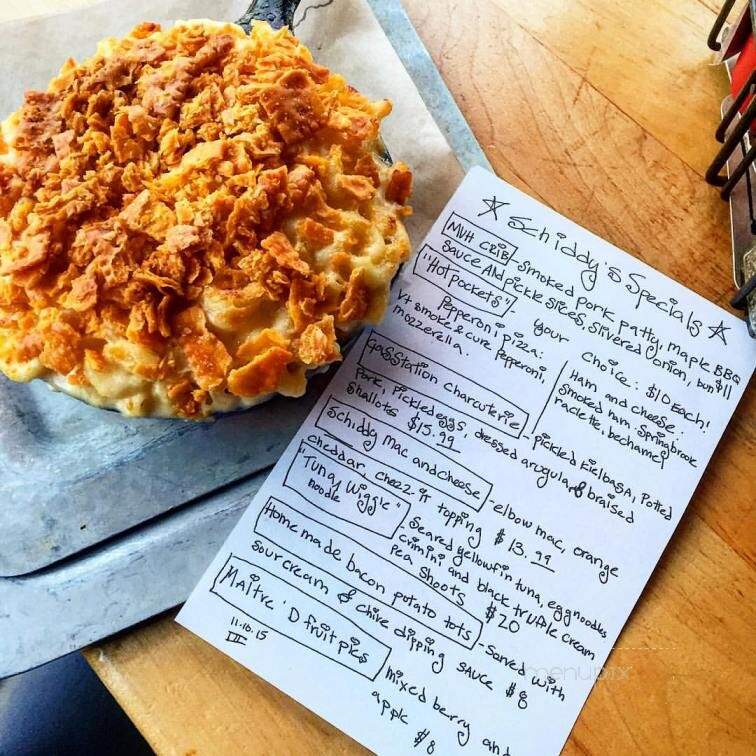 ☆ Schiddy's Specials ☆
MVH CRIB - Smoked Pork Patty, Maple BBQ
Sauce And Pickle slices, slivered onion, bun $11
"Hot Pockets" - your choice: $10 Each!
Pepperoni pizza:
Vt smoke & cure Pepperoni,
mozzerella.
Ham and cheese:
Smoked ham, Springbrook
raclette, bechamel
Gas Station charcuterie - pickled kielbasa, Potted
Pork, Pickled eggs, dressed arugula & braised
Shallots $15.99
Schiddy mac and cheese - elbow mac, orange
cheddar, cheez-it topping $13.99
"Tuna Wiggle" - Seared yellowfin tuna, egg noodles
noodle crimini and black truffle cream
Pea Shoots $20
Home made bacon potato tots - Served with
Sour cream & chive dipping sauce $8
Maitre 'D fruit pies mixed berry and
apple $8
11.10.15
III
menupix